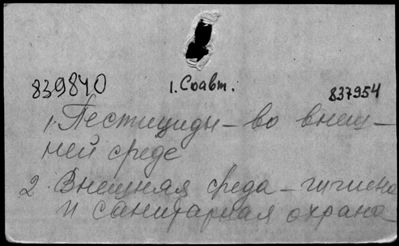 839840 1. Соавт. 837954
1. Пестициды – во внеш-
ней среде
2. Внешняя среда – гигиена
и санитарная охрана